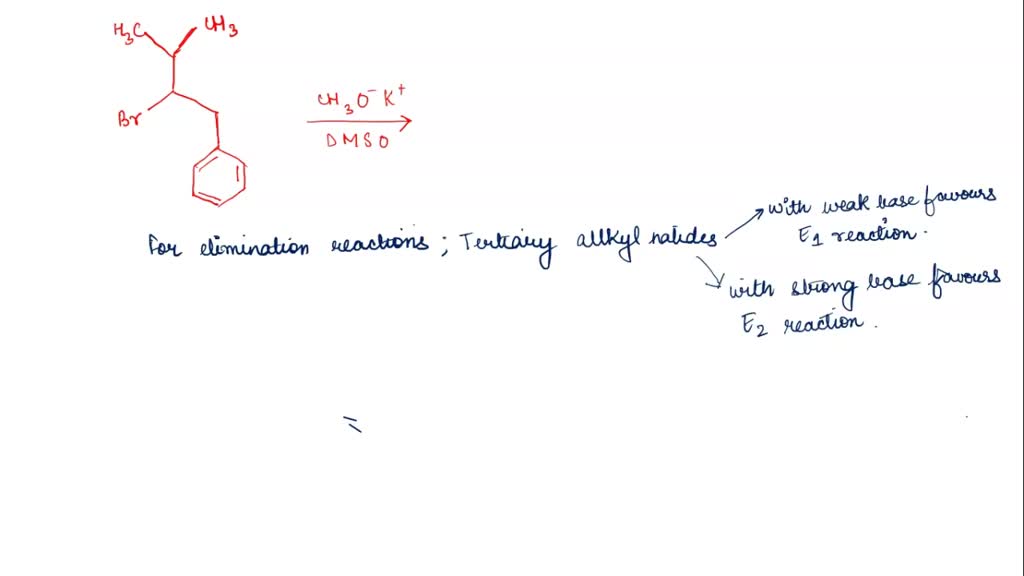 H3C CH3
Br
CH3O⁻K⁺
DMSO
For elimination reactions ; Tertiary allkyl halides
with weak base favours
E1 reaction.
with strong base favours
E2 reaction.
=